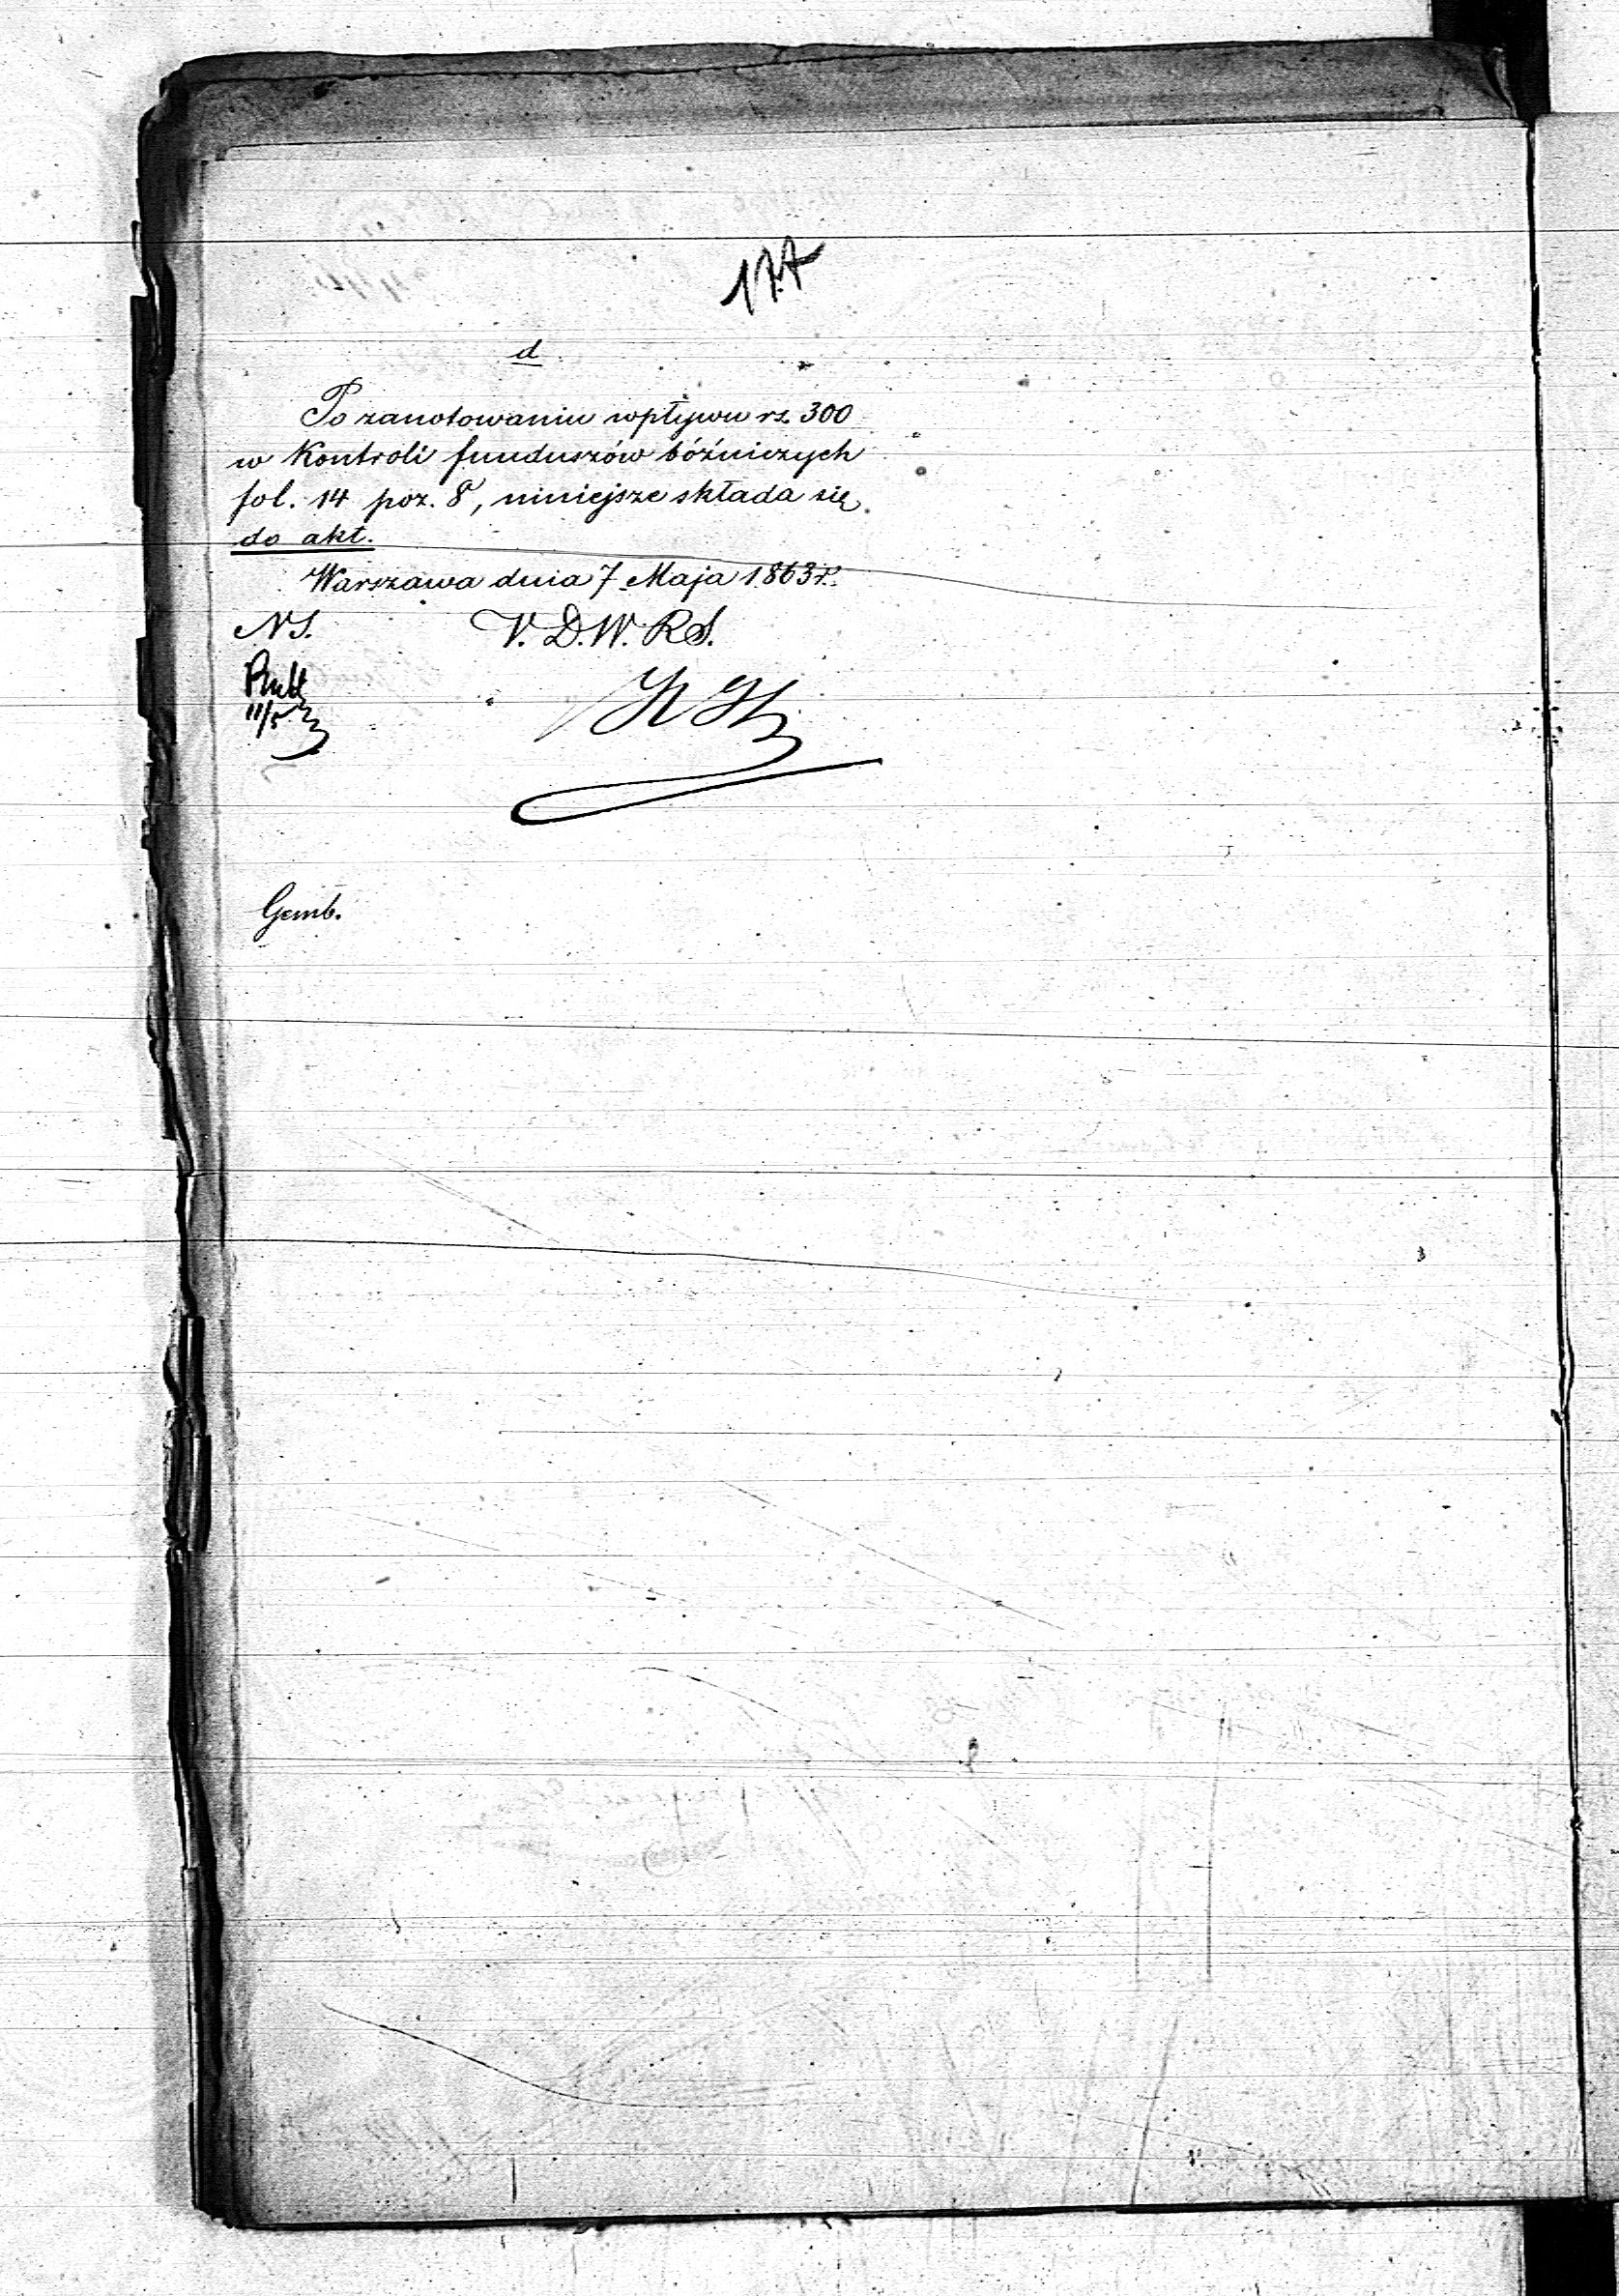 177
d
Po zanotowaniu wpływu rs. 300
w Kontroli funduszów bóźniczych
fol. 14 poz. 8, niniejsze składa się
do akt.
Warszawa dnia 7 Maja 1863 r.
NS. V. D. W. R. S.
11/5
Gemb.